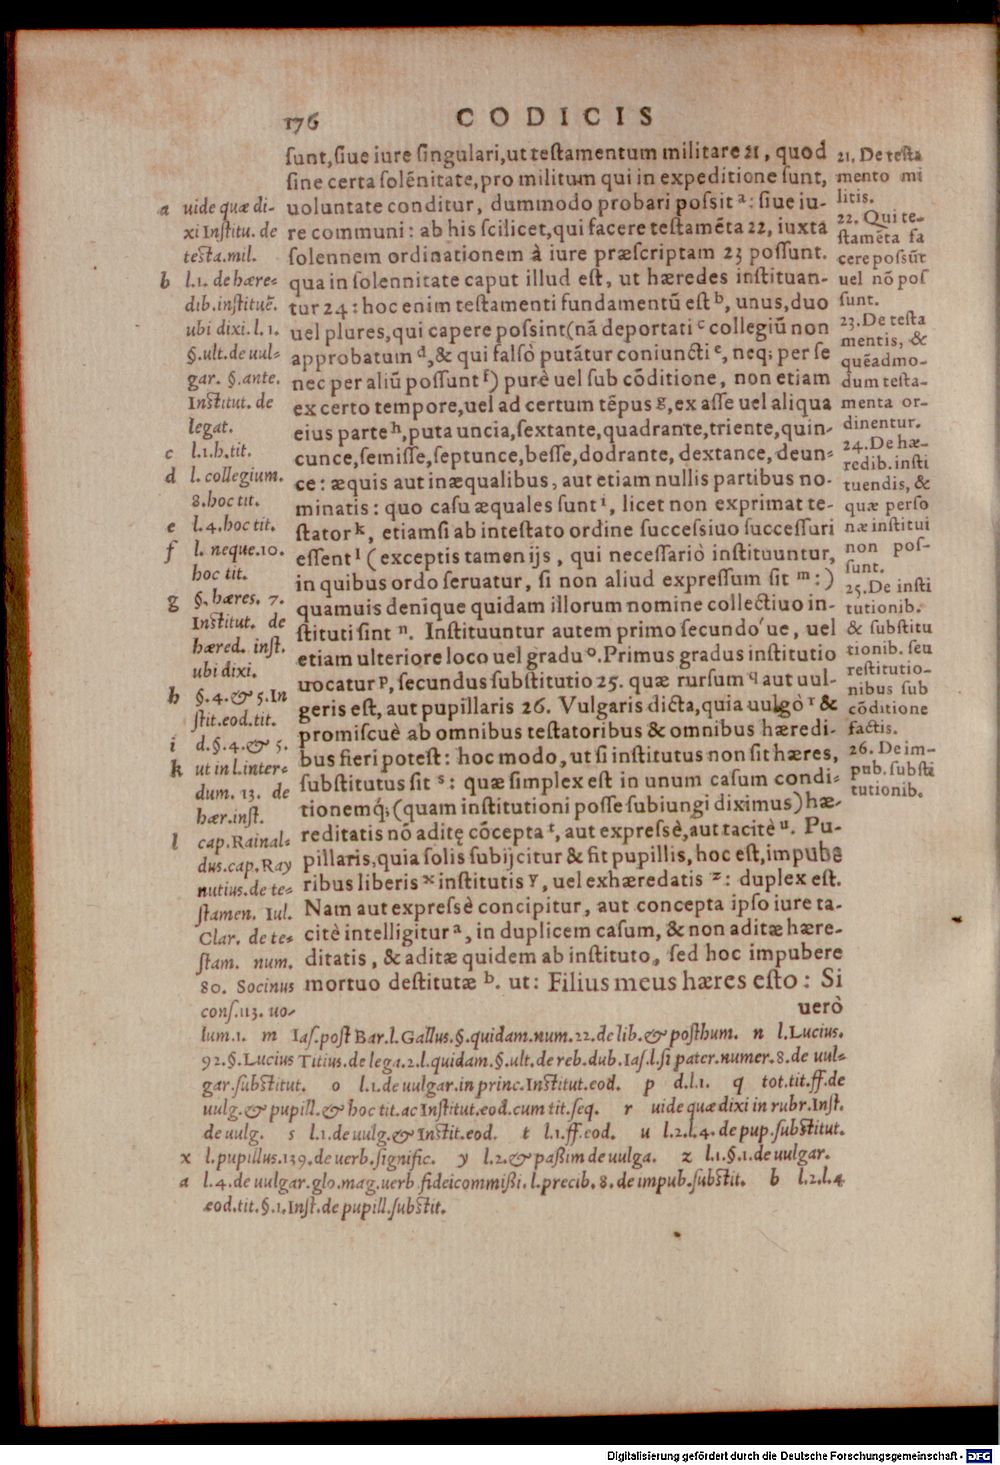 176 CODICIS
sunt, siue iure singulari, ut testamentum militare 21, quod
sine certa solẽnitate, pro militum qui in expeditione sunt,
uoluntate conditur, dummodo probari possit ᵃ: siue iu-
re communi: ab his scilicet, qui facere testamẽta 22, iuxta
solennem ordinationem à iure præscriptam 23 possunt.
qua in solennitate caput illud est, ut hæredes instituan-
tur 24: hoc enim testamenti fundamentũ est ᵇ, unus, duo
uel plures, qui capere possint (nã deportati ᶜ collegiũ non
approbatum ᵈ, & qui falsò putãtur coniuncti ᵉ, neq; per se
nec per aliũ possunt ᶠ) purè uel sub cõditione, non etiam
ex certo tempore, uel ad certum tẽpus ᵍ, ex asse uel aliqua
eius parte ʰ, puta uncia, sextante, quadrante, triente, quin-
cunce, semisse, septunce, besse, dodrante, dextance, deun-
ce: æquis aut inæqualibus, aut etiam nullis partibus no-
minatis: quo casu æquales sunt ⁱ, licet non exprimat te-
stator ᵏ, etiamsi ab intestato ordine successiuo successuri
essent ˡ (exceptis tamen ijs, qui necessariò instituuntur,
in quibus ordo seruatur, si non aliud expressum sit ᵐ:)
quamuis denique quidam illorum nomine collectiuo in-
stituti sint ⁿ. Instituuntur autem primo secundo'ue, uel
etiam ulteriore loco uel gradu ᵒ. Primus gradus institutio
uocatur ᵖ, secundus substitutio 25. quæ rursum ^q aut uul-
geris est, aut pupillaris 26. Vulgaris dicta, quia uulgò ʳ &
promiscuè ab omnibus testatoribus & omnibus hæredi-
bus fieri potest: hoc modo, ut si institutus non sit hæres,
substitutus sit ˢ: quæ simplex est in unum casum condi-
tionemq́; (quam institutioni posse subiungi diximus) hæ-
reditatis nõ aditę cõcepta ᵗ, aut expressè, aut tacitè ᵘ. Pu-
pillaris, quia solis subijcitur & fit pupillis, hoc est, impube
ribus liberis ˣ institutis ʸ, uel exhæredatis ᶻ: duplex est.
Nam aut expressè concipitur, aut concepta ipso iure ta-
citè intelligitur ᵃ, in duplicem casum, & non aditæ hære-
ditatis, & aditæ quidem ab instituto, sed hoc impubere
mortuo destitutæ ᵇ. ut: Filius meus hæres esto: Si
uerò
a uide quæ di-
xi Institu. de
testa.mil.
b l.1. de hære-
dib. instituẽ.
ubi dixi. l.1.
§.ult.de uul-
gar. §.ante.
Institut. de
legat.
c l.1.h.tit.
d l. collegium.
8.hoc tit.
e l.4.hoc tit.
f l. neque.10.
hoc tit.
g §. hæres. 7.
Institut. de
hæred. inst.
ubi dixi.
h §.4.& 5.In
stit.eod.tit.
i d.§.4.& 5.
k ut in l.inter-
dum. 13. de
hær.inst.
l cap.Rainal-
dus.cap.Ray
nutius.de te-
stamen. Iul.
Clar. de te-
stam. num.
80. Socinus
cons.113. uo-
lum.1. m Ias.post Bar.l.Gallus.§.quidam.num.22.de lib.& posthum. n l.Lucius.
92.§.Lucius Titius.de lega.2.l.quidam.§.ult.de reb.dub.Ias.l.si pater.numer.8.de uul-
gar.substitut. o l.1.de uulgar.in princ.Institut.eod. p d.l.1. q tot.tit.ff.de
uulg.& pupill.& hoc tit.ac Institut.eod.cum tit.seq. r uide quæ dixi in rubr.Inst.
de uulg. s l.1.de uulg.& Instit.eod. t l.1.ff.eod. u l.2.l.4. de pup.substitut.
x l.pupillus.139.de uerb.signific. y l.2.& passim de uulga. z l.1.§.1.de uulgar.
a l.4.de uulgar.glo.mag.uerb.fideicommissi.l.precib.8.de impub.substit. b l.2.l.4
eod.tit.§.1.Inst.de pupill.substit.
21. De testa
mento mi
litis.
22. Qui te-
stamẽta fa
cere possũt
uel nõ pos
sunt.
23. De testa
mentis, &
quẽadmo-
dum testa-
menta or-
dinentur.
24. De hæ-
redib. insti
tuendis, &
quæ perso
næ institui
non pos-
sunt.
25. De insti
tutionib.
& substitu
tionib. seu
restitutio-
nibus sub
cõditione
factis.
26. De im-
pub. substi
tutionib.
Digitalisierung gefördert durch die Deutsche Forschungsgemeinschaft - DFG